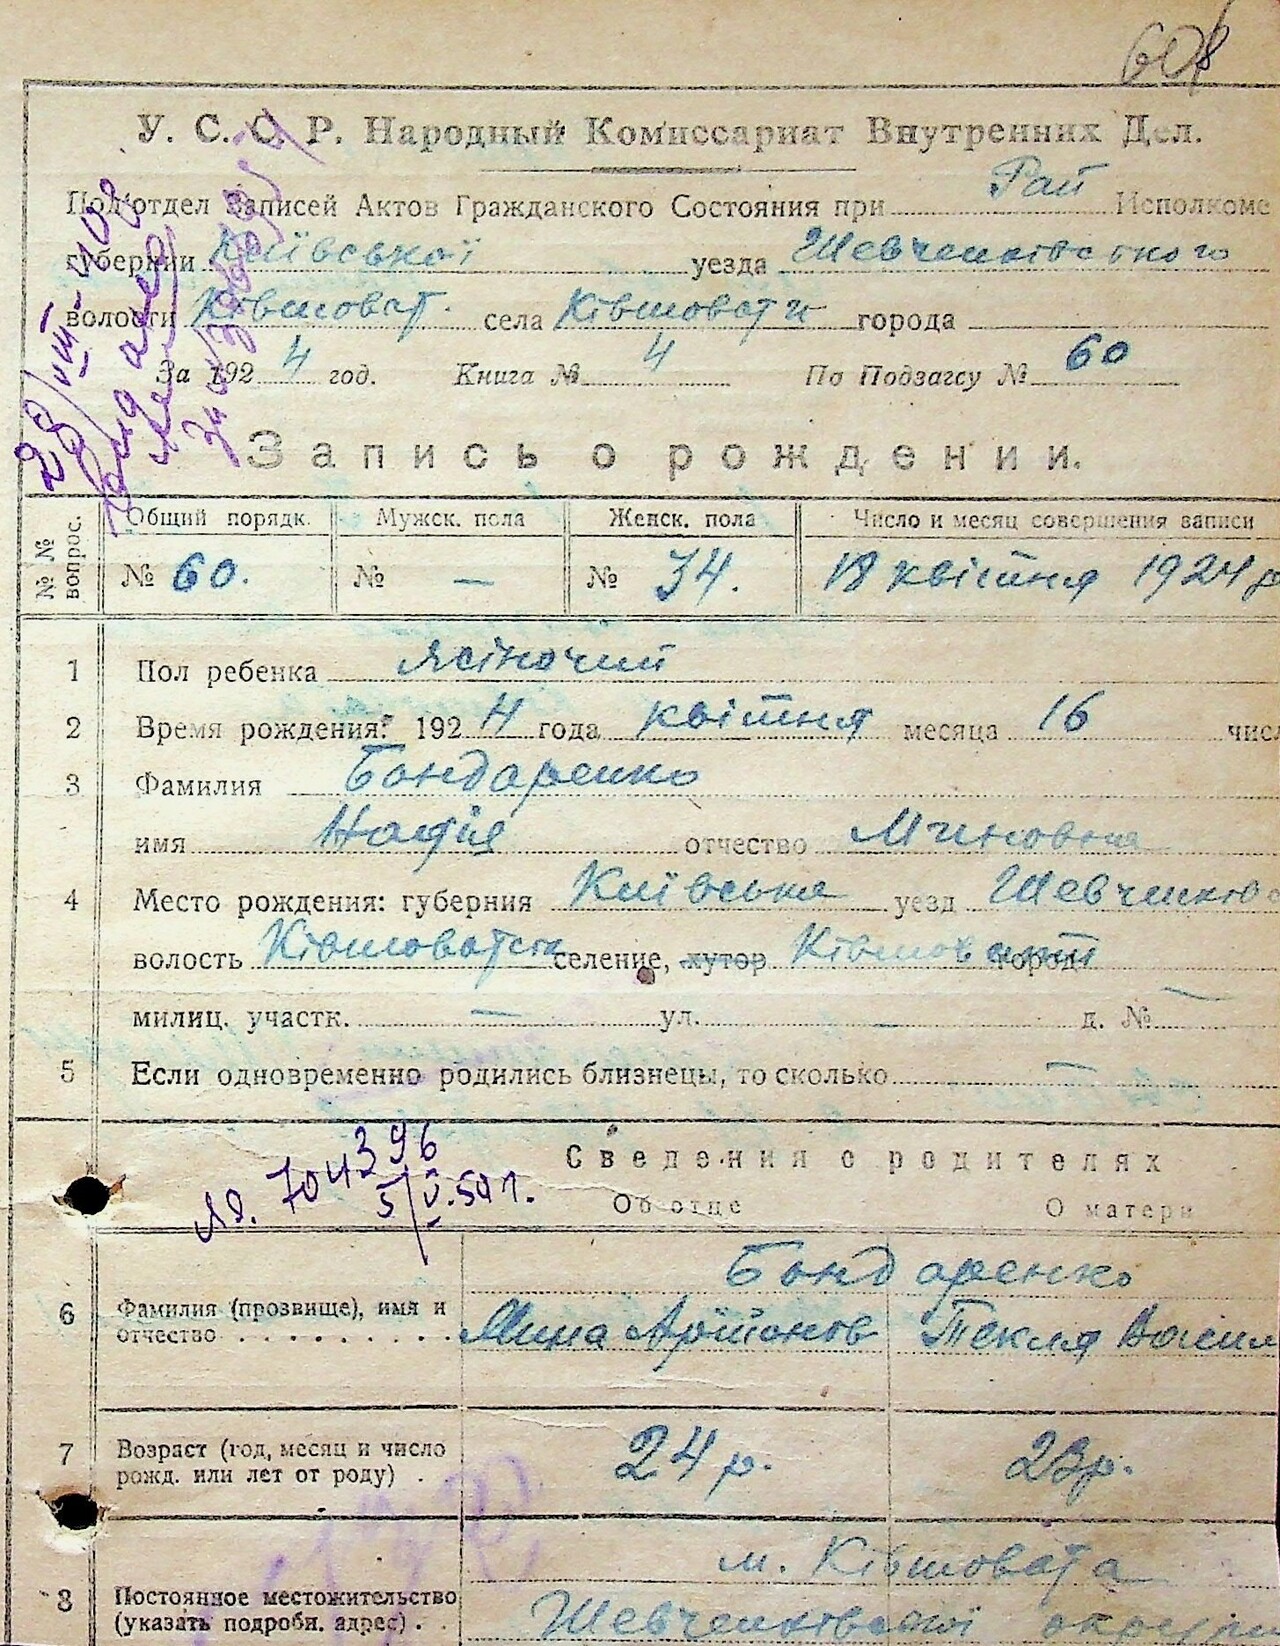 608
У. С. С. Р. Народный Комиссариат Внутренних Дел.
Под'отдел Записей Актов Гражданского Состояния при Рай Исполкоме
губернии Київської уезда Шевченківського
волости Ківшоват. села Ківшовати города
За 1924 год. Книга № 4 По Подзагсу № 60
Запись о рождении.
№ № вопрос. Общий порядк. Мужск. пола Женск. пола Число и месяц совершения записи
№ 60. № — № 34. 18 квітня 1924 р
1 Пол ребенка жіночий
2 Время рождения: 1924 года квітня месяца 16 числ
3 Фамилия Бондаренко
имя Надія отчество Миновна
4 Место рождения: губерния Київська уезд Шевченків
волость Ківшоватск селение, хутор Ківшовати город
милиц. участк. — ул. — д. № —
5 Если одновременно родились близнецы, то сколько —
№. 704396
5/V.50 г.
Сведения о родителях
Об отце О матери
Бондаренко
6 Фамилия (прозвище), имя и отчество Мина Артонов Текля Васил
7 Возраст (год, месяц и число рожд. или лет от роду) 24 р. 23 р.
м. Ківшовата
8 Постоянное местожительство (указать подробн. адрес) Шевченківської округи